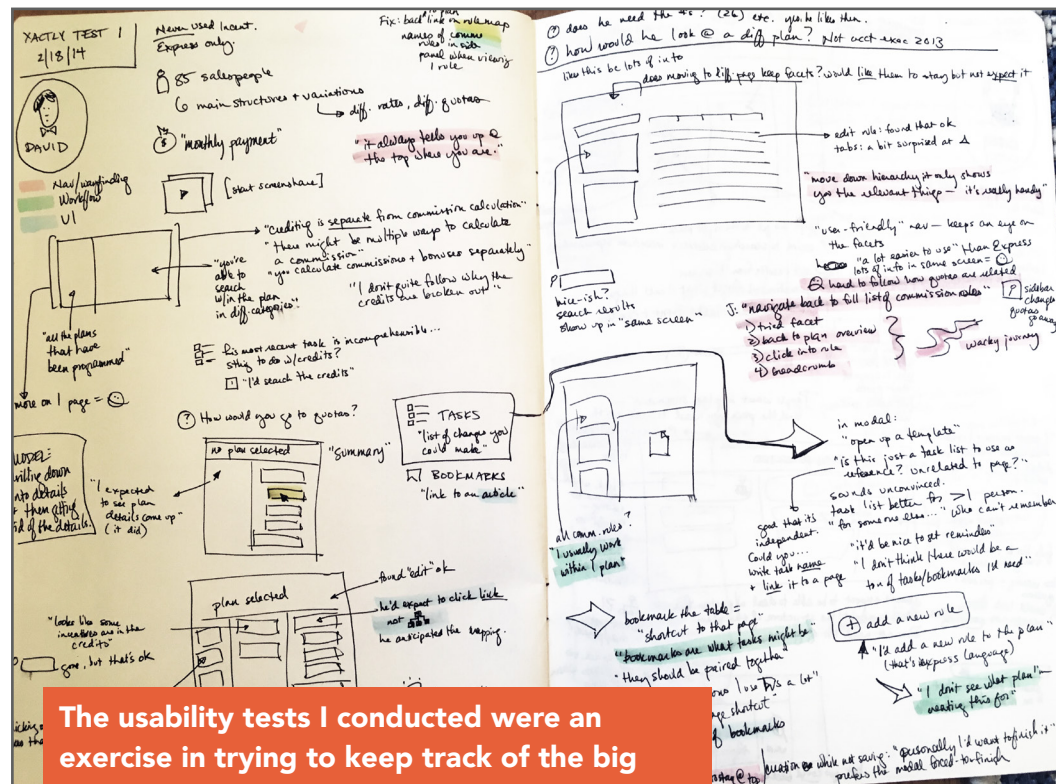 XACTLY TEST 1
2/18/14
DAVID
Nav/wayfinding
Workflow
UI
Never used Incent.
Express only.
85 salespeople
6 main structures + variations
diff. rates, diff. quotas
"monthly payment"
[start screenshare]
Fix: back link on rule map
names of comm
rules in side
panel when viewing
1 rule
"it always tells you up @
the top where you are."
"crediting is separate from commission calculation"
"there might be multiple ways to calculate
a commission"
"you calculate commissions + bonuses separately"
"I don't quite follow why the
credits are broken out"
"you're
able to
search
w/in the plan
in diff. categories"
"all the plans
that have
been programmed"
more on 1 page =
his most recent task is incomprehensible...
sthg to do w/credits?
"I'd search the credits"
? How would you go to quotas?
no plan selected
"Summary"
MODEL:
drilling down
into details
+ then getting
rid of the details.
"I expected
to see plan
details come up"
(it did)
TASKS
"list of changes you
could make"
BOOKMARKS
"link to an article"
plan selected
found "edit" ok
he'd expect to click link
not
he anticipated the mapping.
"looks like some
incentives are in the
credits"
gone, but that's ok
? does he need the #s? (26) etc. yes. he likes them.
? how would he look @ a diff plan? Not acct exec 2013
like this be lots of info
does moving to diff. page keep facets? would like them to stay but not expect it
edit rule: found that ok
tabs: a bit surprised at
"move down hierarchy it only shows
you the relevant things — it's really handy"
"user-friendly" nav — keeps an eye on
the facets
"a lot easier to use" than Express
lots of info in same screen =
hard to follow how quotas are related
P sidebar
change
quotas
go away
P
nice-ish?
search results
show up in "same screen"
J: "navigate back to full list of commission rules"
1) tried facet
2) back to plan overview
3) click into rule
4) breadcrumb
wacky journey
all comm. rules?
"I usually work
within 1 plan"
in modal:
"open up a template"
"is this just a task list to use as
reference? unrelated to page?"
sounds unconvinced.
task list better for >1 person.
"for someone else..." who can't remember
"it'd be nice to set reminders"
"I don't think there would be a
ton of tasks/bookmarks I'd need"
good that it's
independent.
Could you...
write task name
+ link it to a page
bookmark the table =
"shortcut to that page"
"bookmarks are what tasks might be"
"they should be paired together"
I use this a lot"
shortcut"
bookmarks
+ add a new rule
"I'd add a new rule to the plan"
(that's express language)
"I don't see what plan I'm
creating this for"
while not saving: "personally I'd want to finish it"
prefers the modal forced-to-finish
The usability tests I conducted were an
exercise in trying to keep track of the big